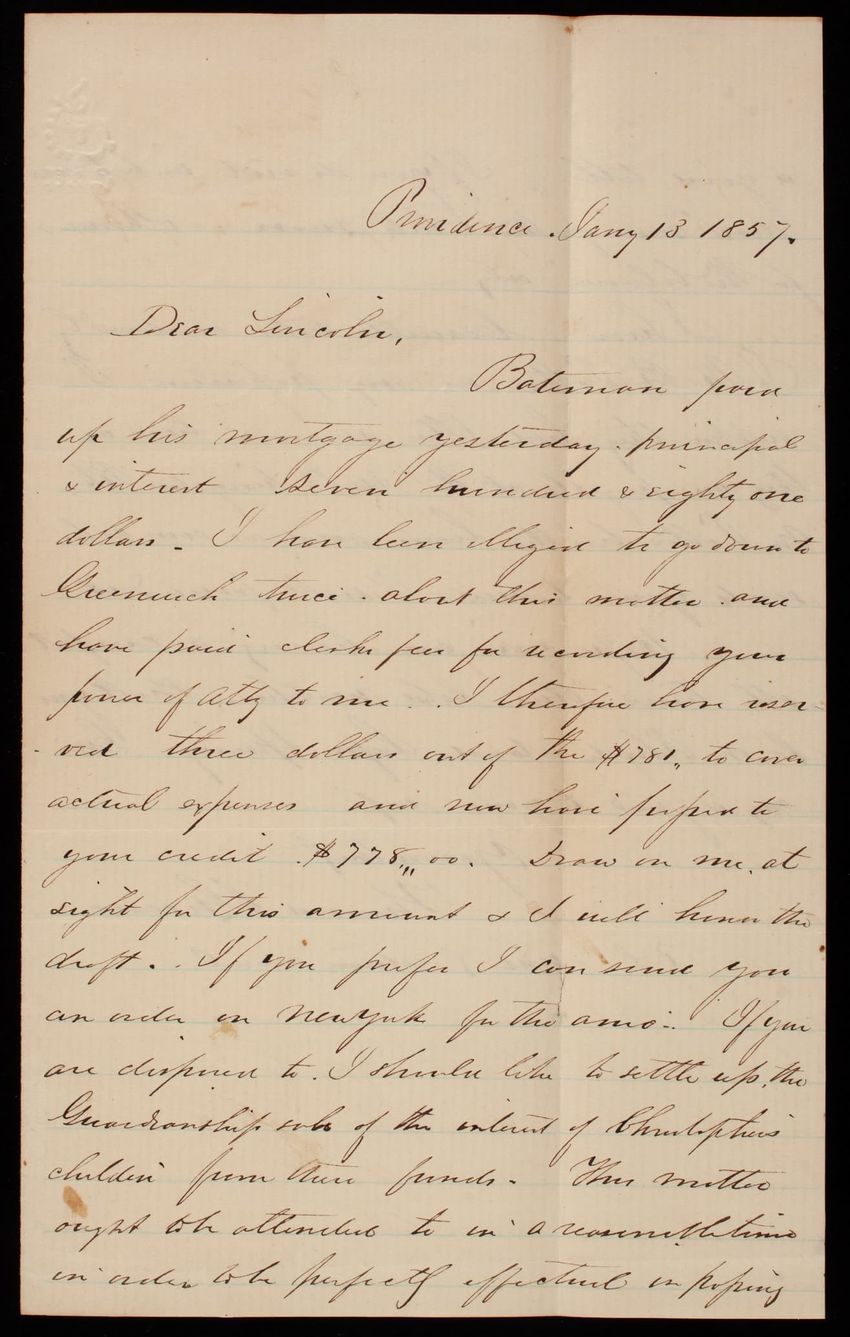 Providence. Jany 13 1857.
Dear Lincoln,
Bateman paid
up his mortgage yesterday. principal
& interest seven hundred & eighty one
dollars - I have been obliged to go down to
Greenwich twice. about this matter. and
have paid clerks fees for recording your
power of atty to me.. I therefore have reser-
-ved three dollars out of the $781,, to cover
actual expenses and now have passed to
your credit $778,,, 00. Draw on me. at
sight for this amount & I will honor the
draft.. If you prefer I can send you
an order on New York for the amo.. If you
are disposed to. I should like to settle up. the
Guardianship sale of the interest of Christophers
children from these funds - This matter
ought to be attended to in a reasonable time
in order to be perfectly effectual in passing